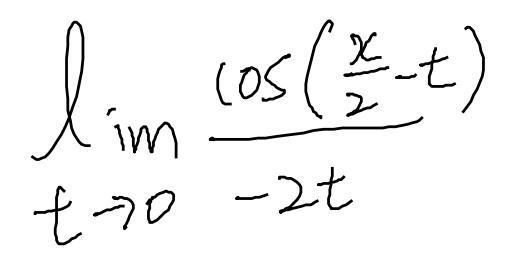 lim t→0 cos(x/2 - t) / -2t